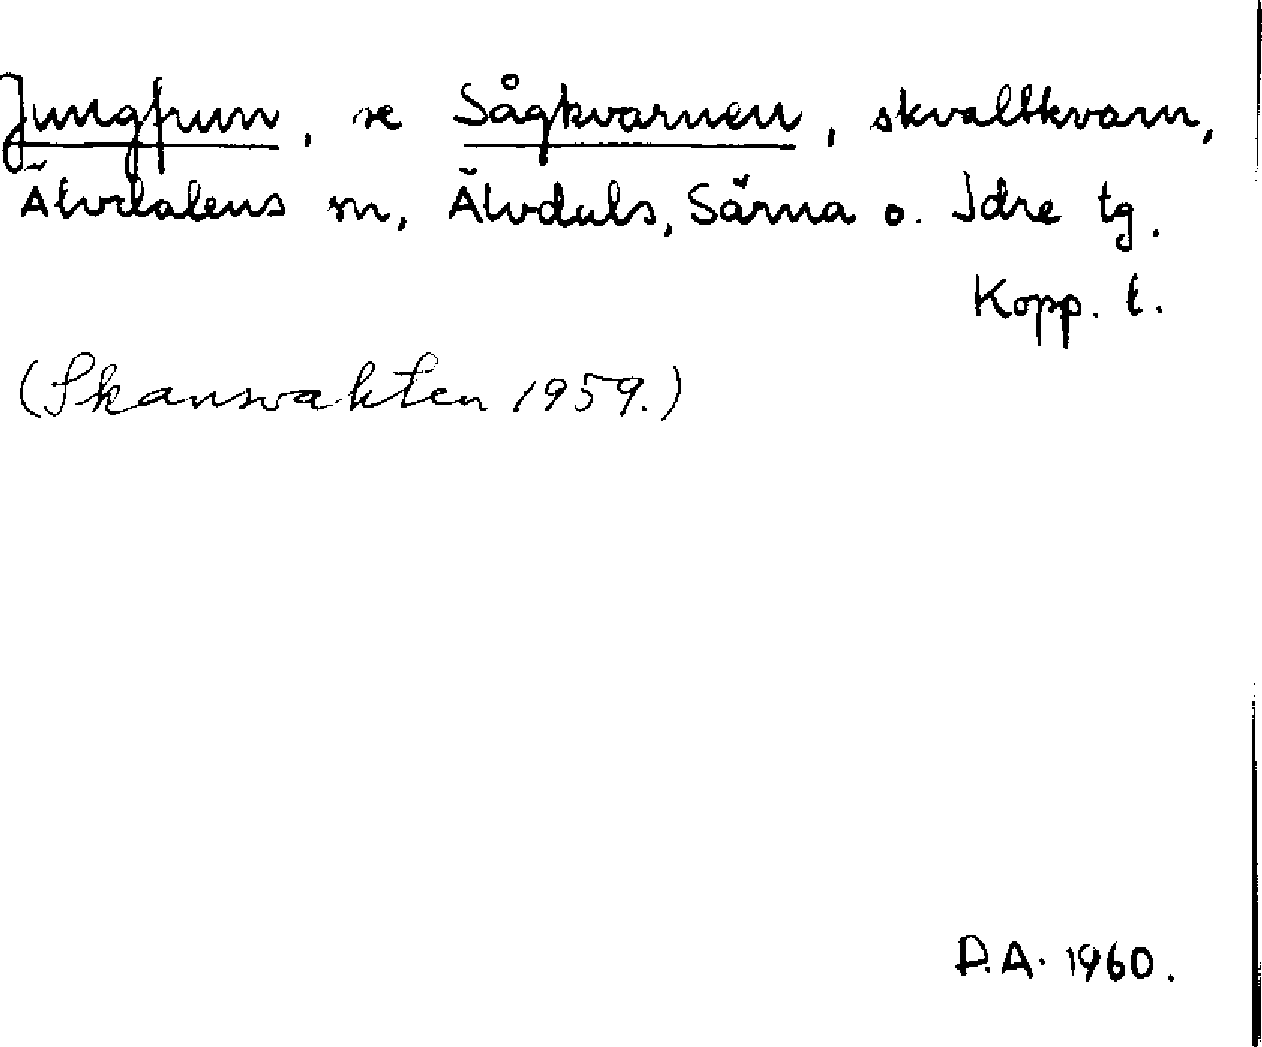 Jungfrun, se Sågkvarnen, skvaltkvarn,
Älvdalens sn, Älvdals, Särna o. Idre tg.
Kopp. l.
(Skansvakten 1959.)
D.A. 1960.